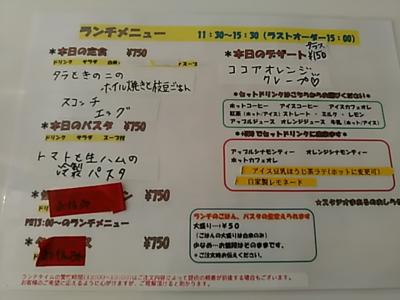 ランチメニュー
11:30～15:30(ラストオーダー15:00)
*本日の定食 ¥750
ドリンク サラダ
タラときのこの
ホイル焼きと枝豆ごはん
スコッチ
エッグ
*本日のパスタ ¥750
ドリンク サラダ スープ付
トマトと生ハムの
冷製 パスタ
¥750
PM13:00～のランチメニュー
¥750
*本日のデザート プラス ¥150
ココアオレンジ
クレープ♡
*セットドリンクはこちらからお選びください
ホットコーヒー アイスコーヒー アイスカフェオレ
紅茶(ホット/アイス) ストレート・ミルク・レモン
アップルジュース オレンジジュース 牛乳(ホット/アイス)
でセットドリンクに
アップルシナモンティー オレンジシナモンティー
ホットカフェオレ
アイス豆乳ほうじ茶ラテ(ホットに変更可)
自家製レモネード
ランチのごはん、パスタの量変えられます
大盛り…＋¥50
(ごはんの大盛りは白米のみ)
少なめ…お値段はそのままです。
*ご注文時お伝えください。